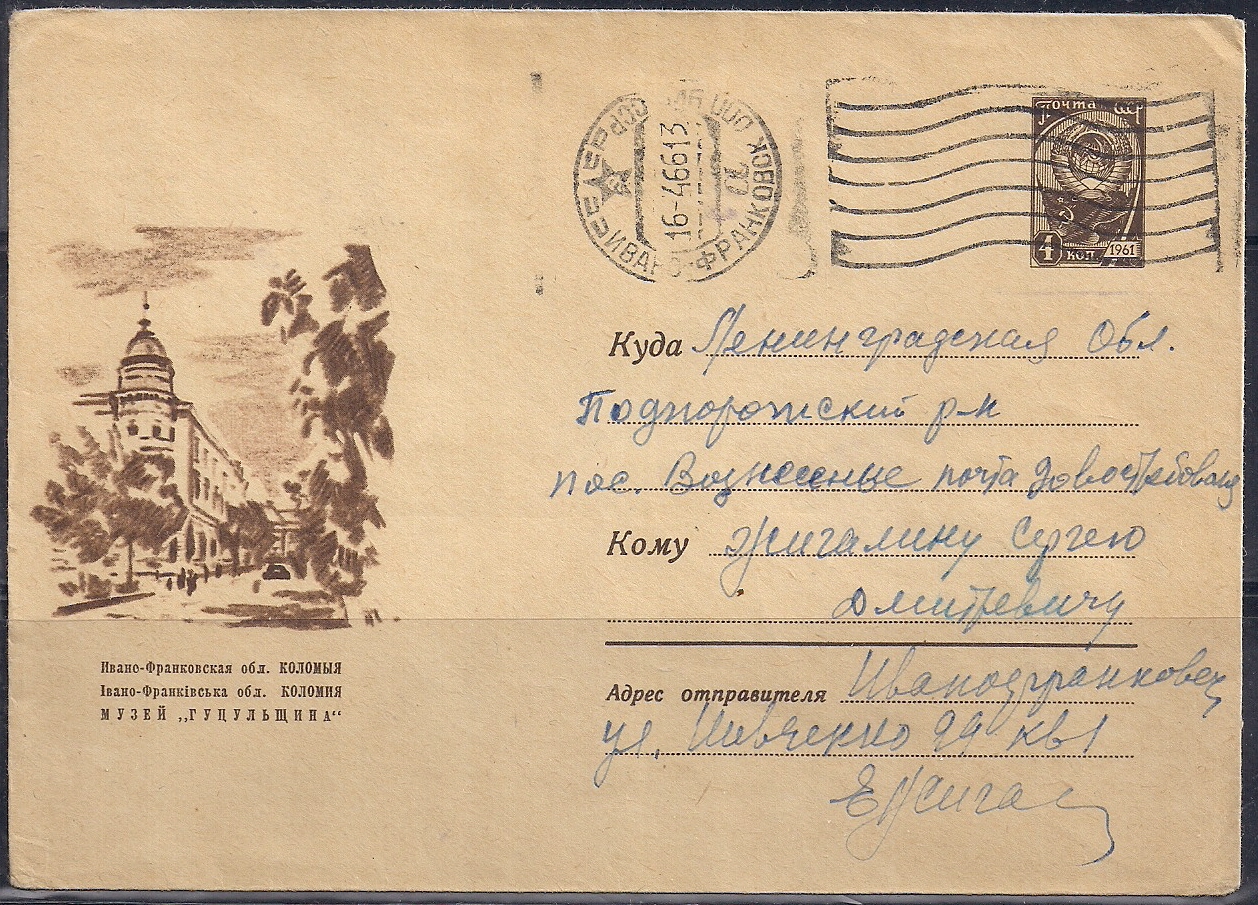 Почта СССР
4 коп. 1961
СССР
ИВАНО-ФРАНКОВСК
16-4 66 13
Куда Ленинградская Обл.
Подпорожский р-н
пос. Вознесенье почта Довостребования
Кому Жигалину Сергею
Дмитревичу
Ивано-Франковская обл. КОЛОМЫЯ
Івано-Франківська обл. КОЛОМИЯ
МУЗЕЙ „ГУЦУЛЬЩИНА“
Адрес отправителя Иванофранковск
ул. Шевченко 94 кв 1